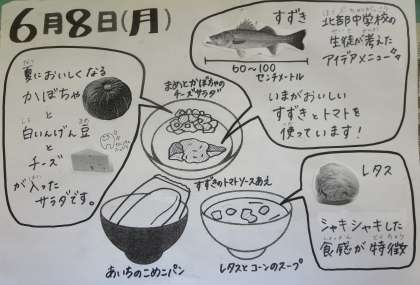 6月8日(月)
夏においしくなる
かぼちゃ
と
白いんげん豆
と
チーズ
が入った
サラダです。
まめとかぼちゃの
チーズサラダ
すずき
60～100
センチメートル
北部中学校の
生徒が考えた
アイデアメニュー
いまがおいしい
すずきとトマトを
使っています!
すずきのトマトソースあえ
あいちのこめこパン
レタスとコーンのスープ
レタス
シャキシャキした
食感が特徴